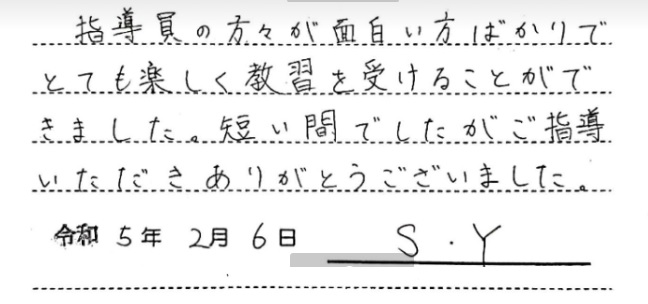 指導員の方々が面白い方ばかりで
とても楽しく教習を受けることがで
きました。短い間でしたがご指導
いただきありがとうございました。
令和 5年 2月 6日 S.Y